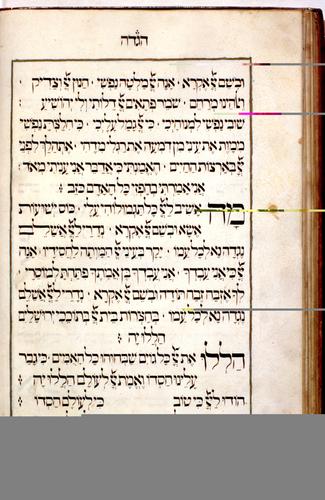 הגדה
ובשם יְיָ אקרא · אנה יְיָ מלטה נפשי · חנון יְיָ וצדיק
ואלהינו מרחם · שומר פתאים יְיָ דלותי ולי יהושיע
שובי נפשי למנוחיכי · כי יְיָ גמל עליכי · כי חלצת נפשי
ממות את עיני מן דמעה את רגלי מדחי · אתהלך לפני
יְיָ בארצות החיים · האמנתי כי אדבר אני עניתי מאד ·
אני אמרתי בחפזי כל האדם כוזב :
מה אשיב ליְיָ כל תגמולוהי עלי · כוס ישועות
אשא ובשם יְיָ אקרא · נדרי ליְיָ אשלם
נגדה נא לכל עמו · יקר בעיני יְיָ המותה לחסידיו · אנה
יְיָ כי אני עבדך · אני עבדך בן אמתך פתחת למוסרי ·
לך אזבח זבח תודה ובשם יְיָ אקרא · נדרי ליְיָ אשלם
נגדה נא לכל עמו · בחצרות בית יְיָ בתוככי ירושלים
הללויה :
הללו את יְיָ כל גוים שבחוהו כל האמים · כי גבר
עלינו חסדו ואמת יְיָ לעולם הללויה :
הודו ליְיָ כי טוב כי לעולם חסדו :